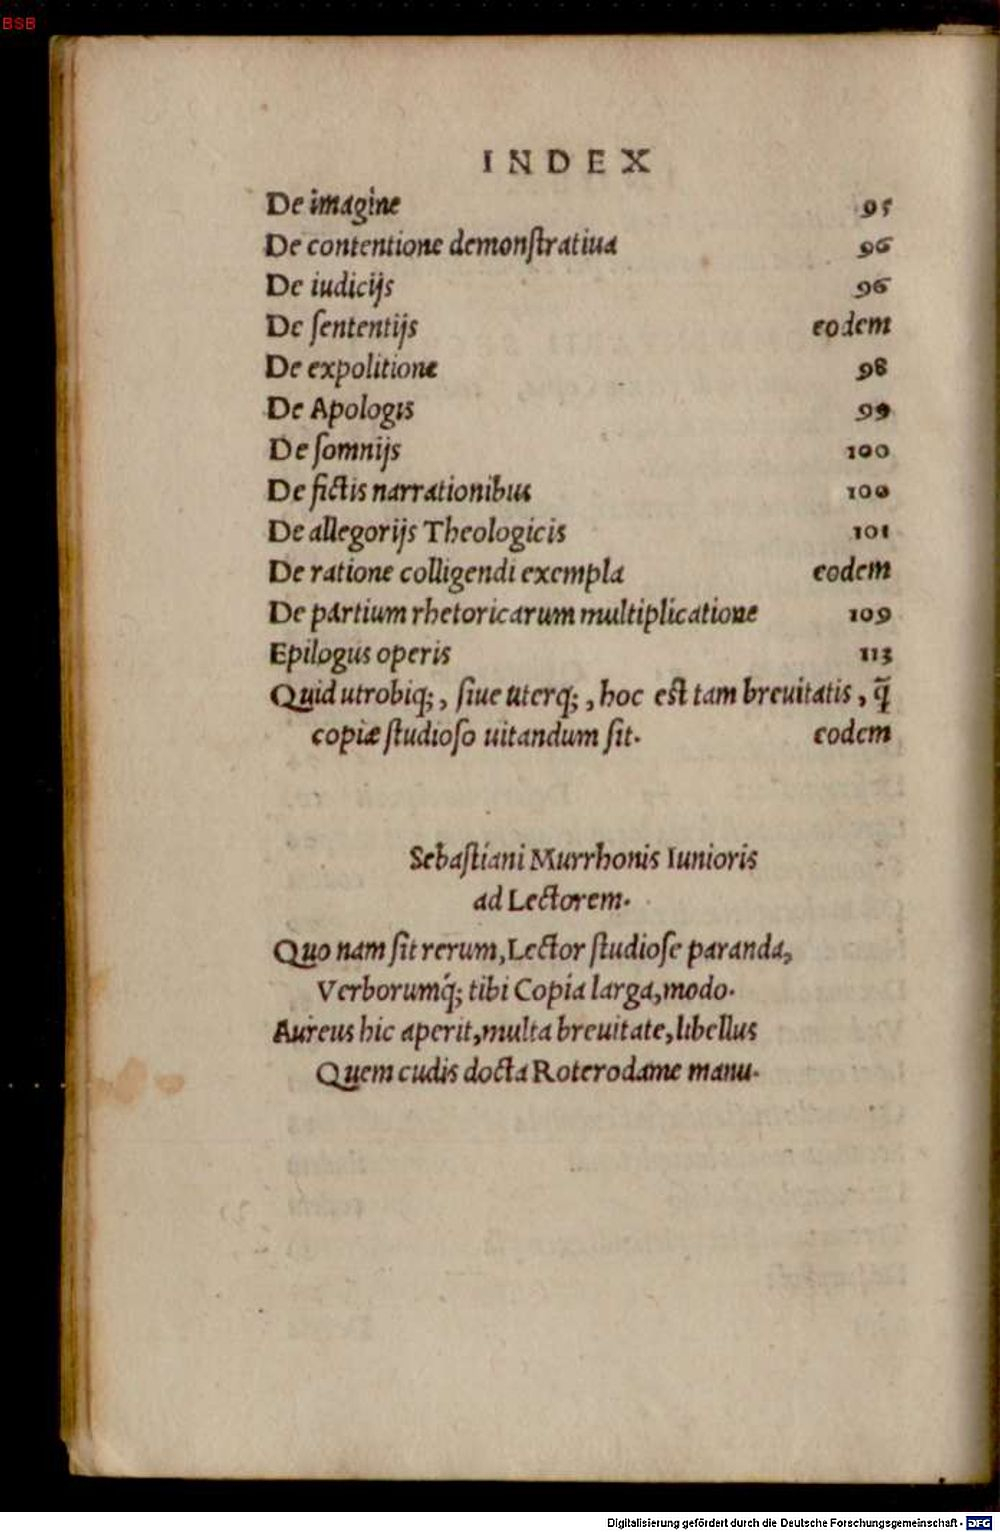 BSB
INDEX
De imagine 95
De contentione demonſtratiua 96
De iudicijs 96
De ſententijs eodem
De expolitione 98
De Apologis 99
De ſomnijs 100
De fictis narrationibus 100
De allegorijs Theologicis 101
De ratione colligendi exempla eodem
De partium rhetoricarum multiplicatione 109
Epilogus operis 113
Quid utrobiq;, ſiue uterq;, hoc eſt tam breuitatis, q̃
copiæ ſtudioſo uitandum ſit. eodem
Sebaſtiani Murrhonis Iunioris
ad Lectorem.
Quo nam ſit rerum, Lector ſtudioſe paranda,
Verborumq́; tibi Copia larga, modo.
Aureus hic aperit, multa breuitate, libellus
Quem cudis docta Roterodame manu.
Digitalisierung gefördert durch die Deutsche Forschungsgemeinschaft - DFG